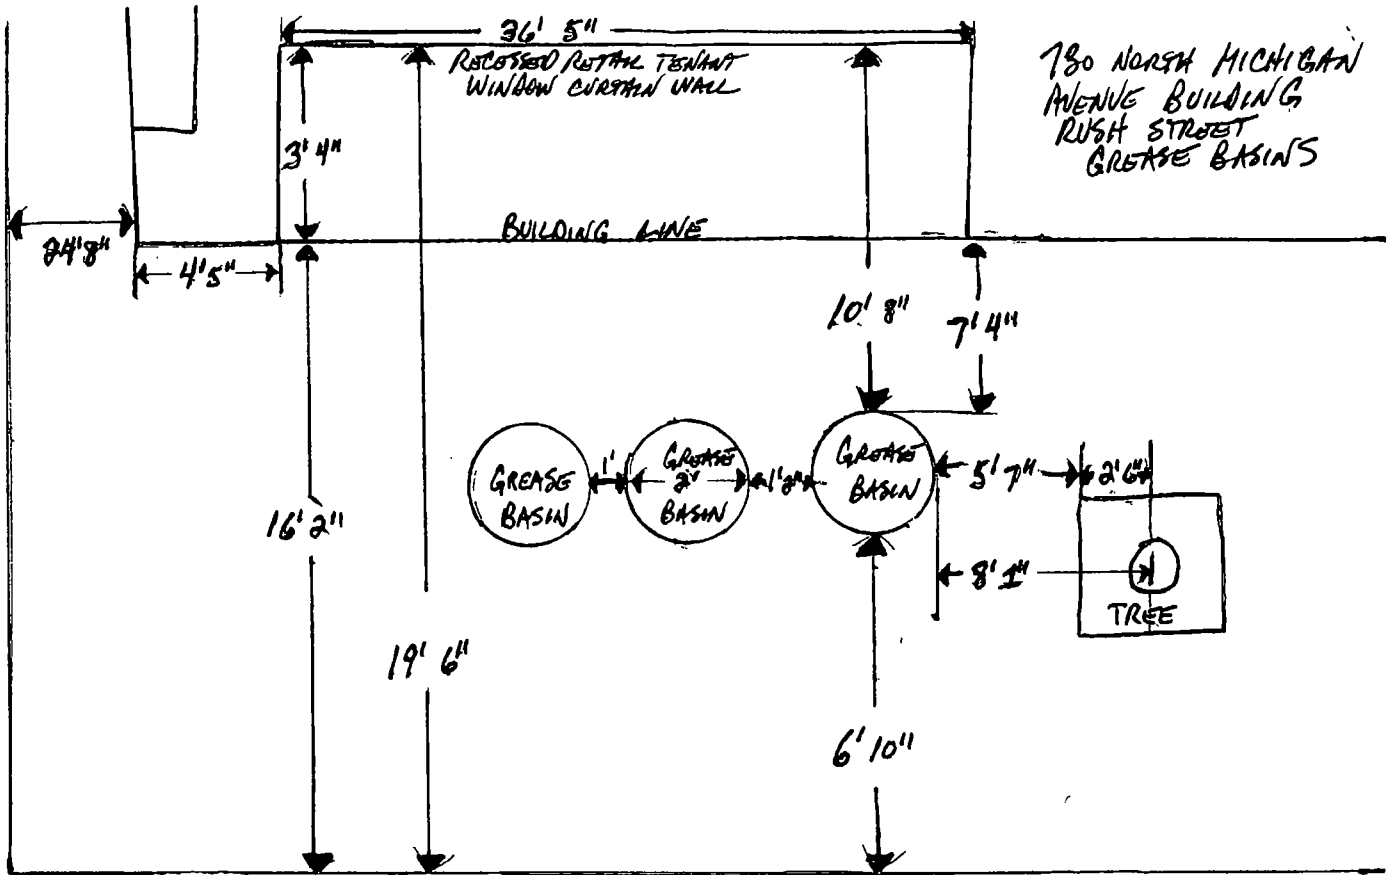 36' 5"
RECESSED RETAIL TENANT
WINDOW CURTAIN WALL
780 NORTH MICHIGAN
AVENUE BUILDING
RUSH STREET
GREASE BASINS
3' 4"
BUILDING LINE
24' 8"
4' 5"
10' 8"
7' 4"
GREASE
BASIN
1'
GREASE
2'
BASIN
1' 2"
GREASE
BASIN
5' 7"
2' 6"
16' 2"
8' 1"
TREE
19' 6"
6' 10"